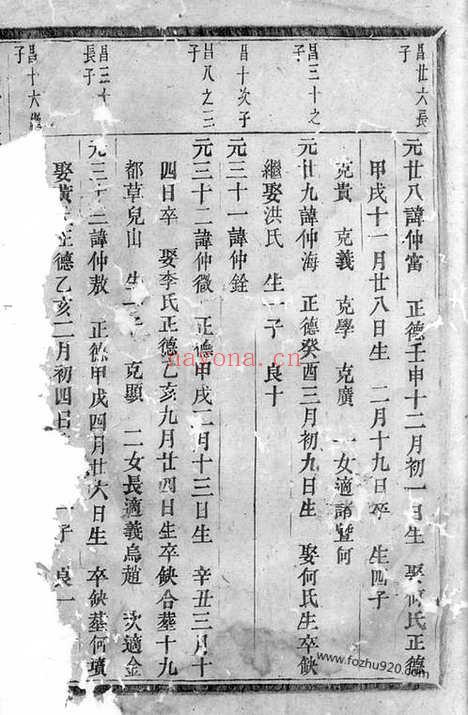 昌廿六長子
元廿八諱仲富 正德壬申十二月初一日生 娶何氏正德
甲戌十一月廿八日生 二月十九日卒 生四子
克貴 克義 克學 克廣 一女適諸暨何
昌三十之子
元廿九諱仲海 正德癸酉三月初九日生 娶何氏生卒缺
繼娶洪氏 生一子 良十
昌十次子
元三十一諱仲銓
昌八之三子
元三十二諱仲微 正德甲戌二月十三日生 辛丑三月十
四日卒 娶李氏正德乙亥九月廿四日生卒缺合墓十九
都草兒山 生 子 克顯 二女長適義烏趙 次適金
昌三十長子
元三十三諱仲敖 正德甲戌四月廿六日生 卒缺墓何
娶黃 正德乙亥二月初四日 子 良一
昌十六 子
nayona.cn
www.fozhu920.com